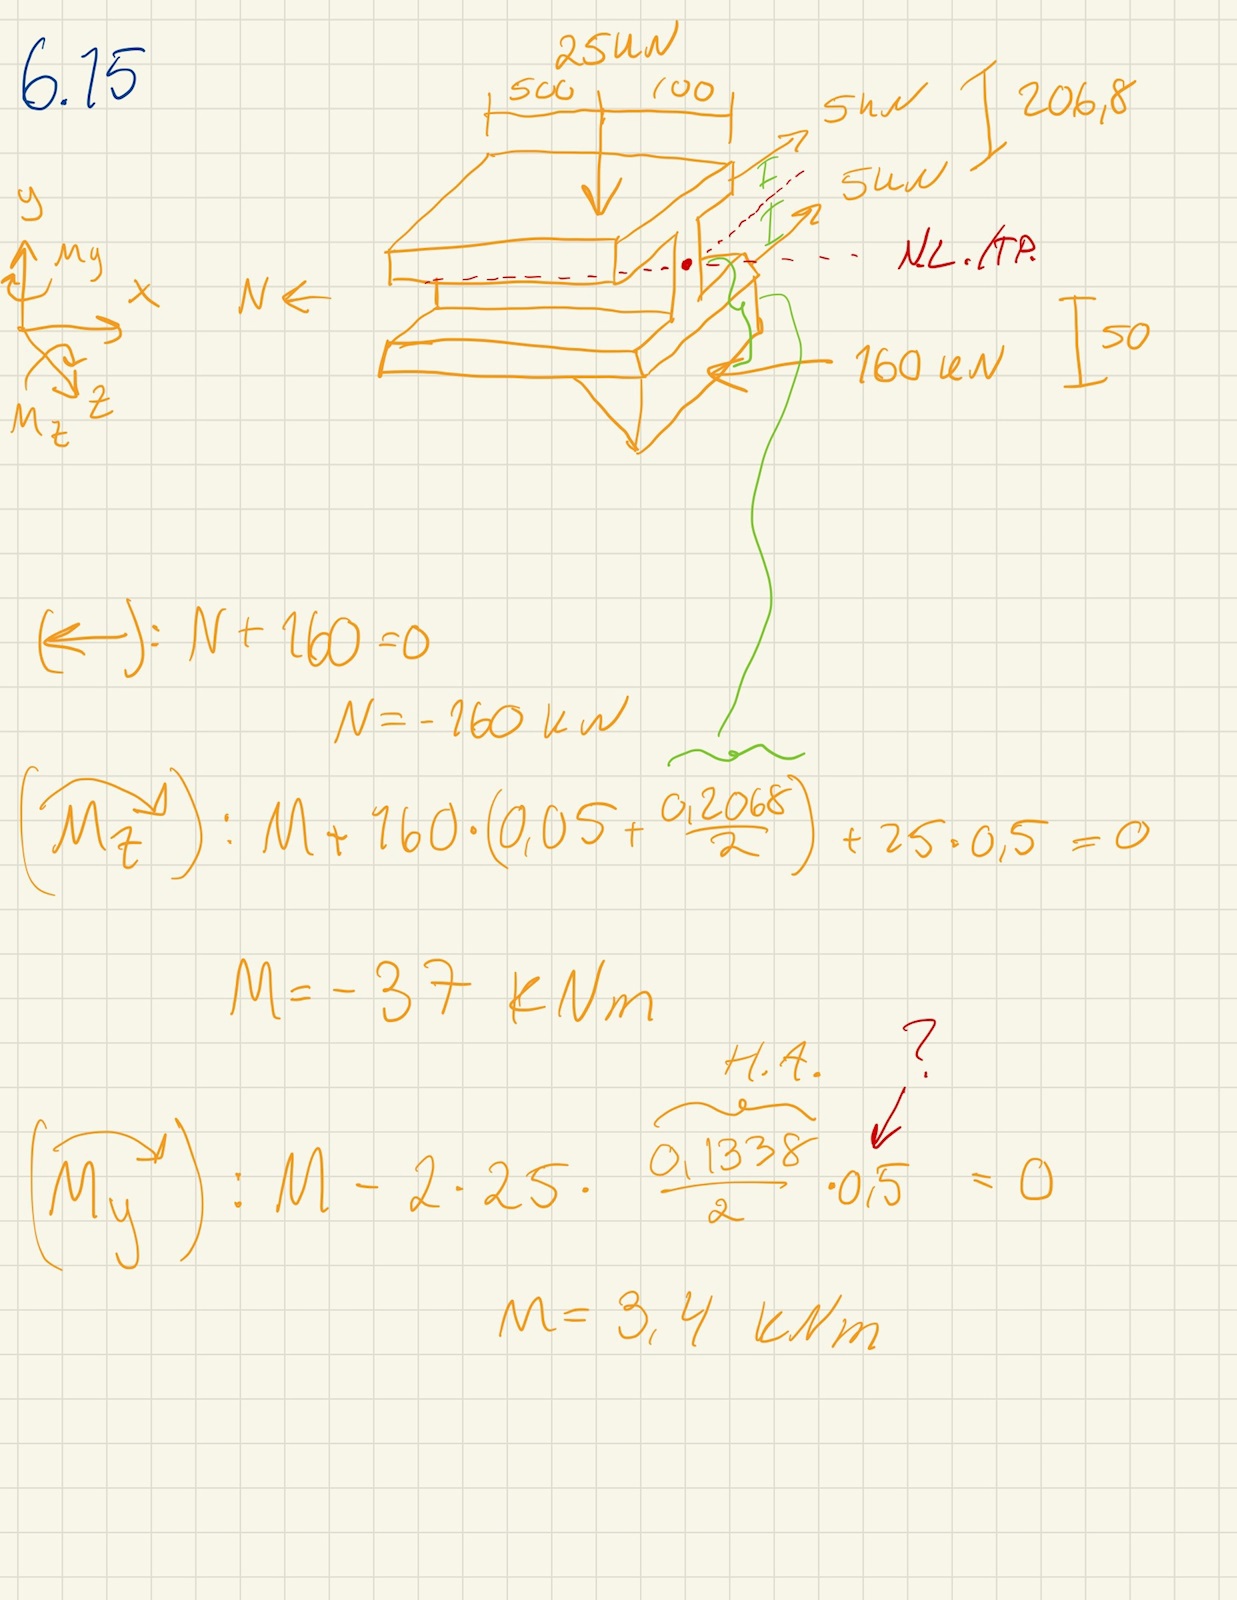 6.15
25kN
500 100
5kN
206,8
5kN
y
My
x
N ←
N.L./T.P.
z
Mz
160 kN
50
(←): N + 160 = 0
N = -160 kN
(Mz): M + 160·(0,05 + 0,2068/2) + 25·0,5 = 0
M = -37 kNm
?
H.A.
(My): M - 2·25· 0,1338/2 ·0,5 = 0
M = 3,4 kNm